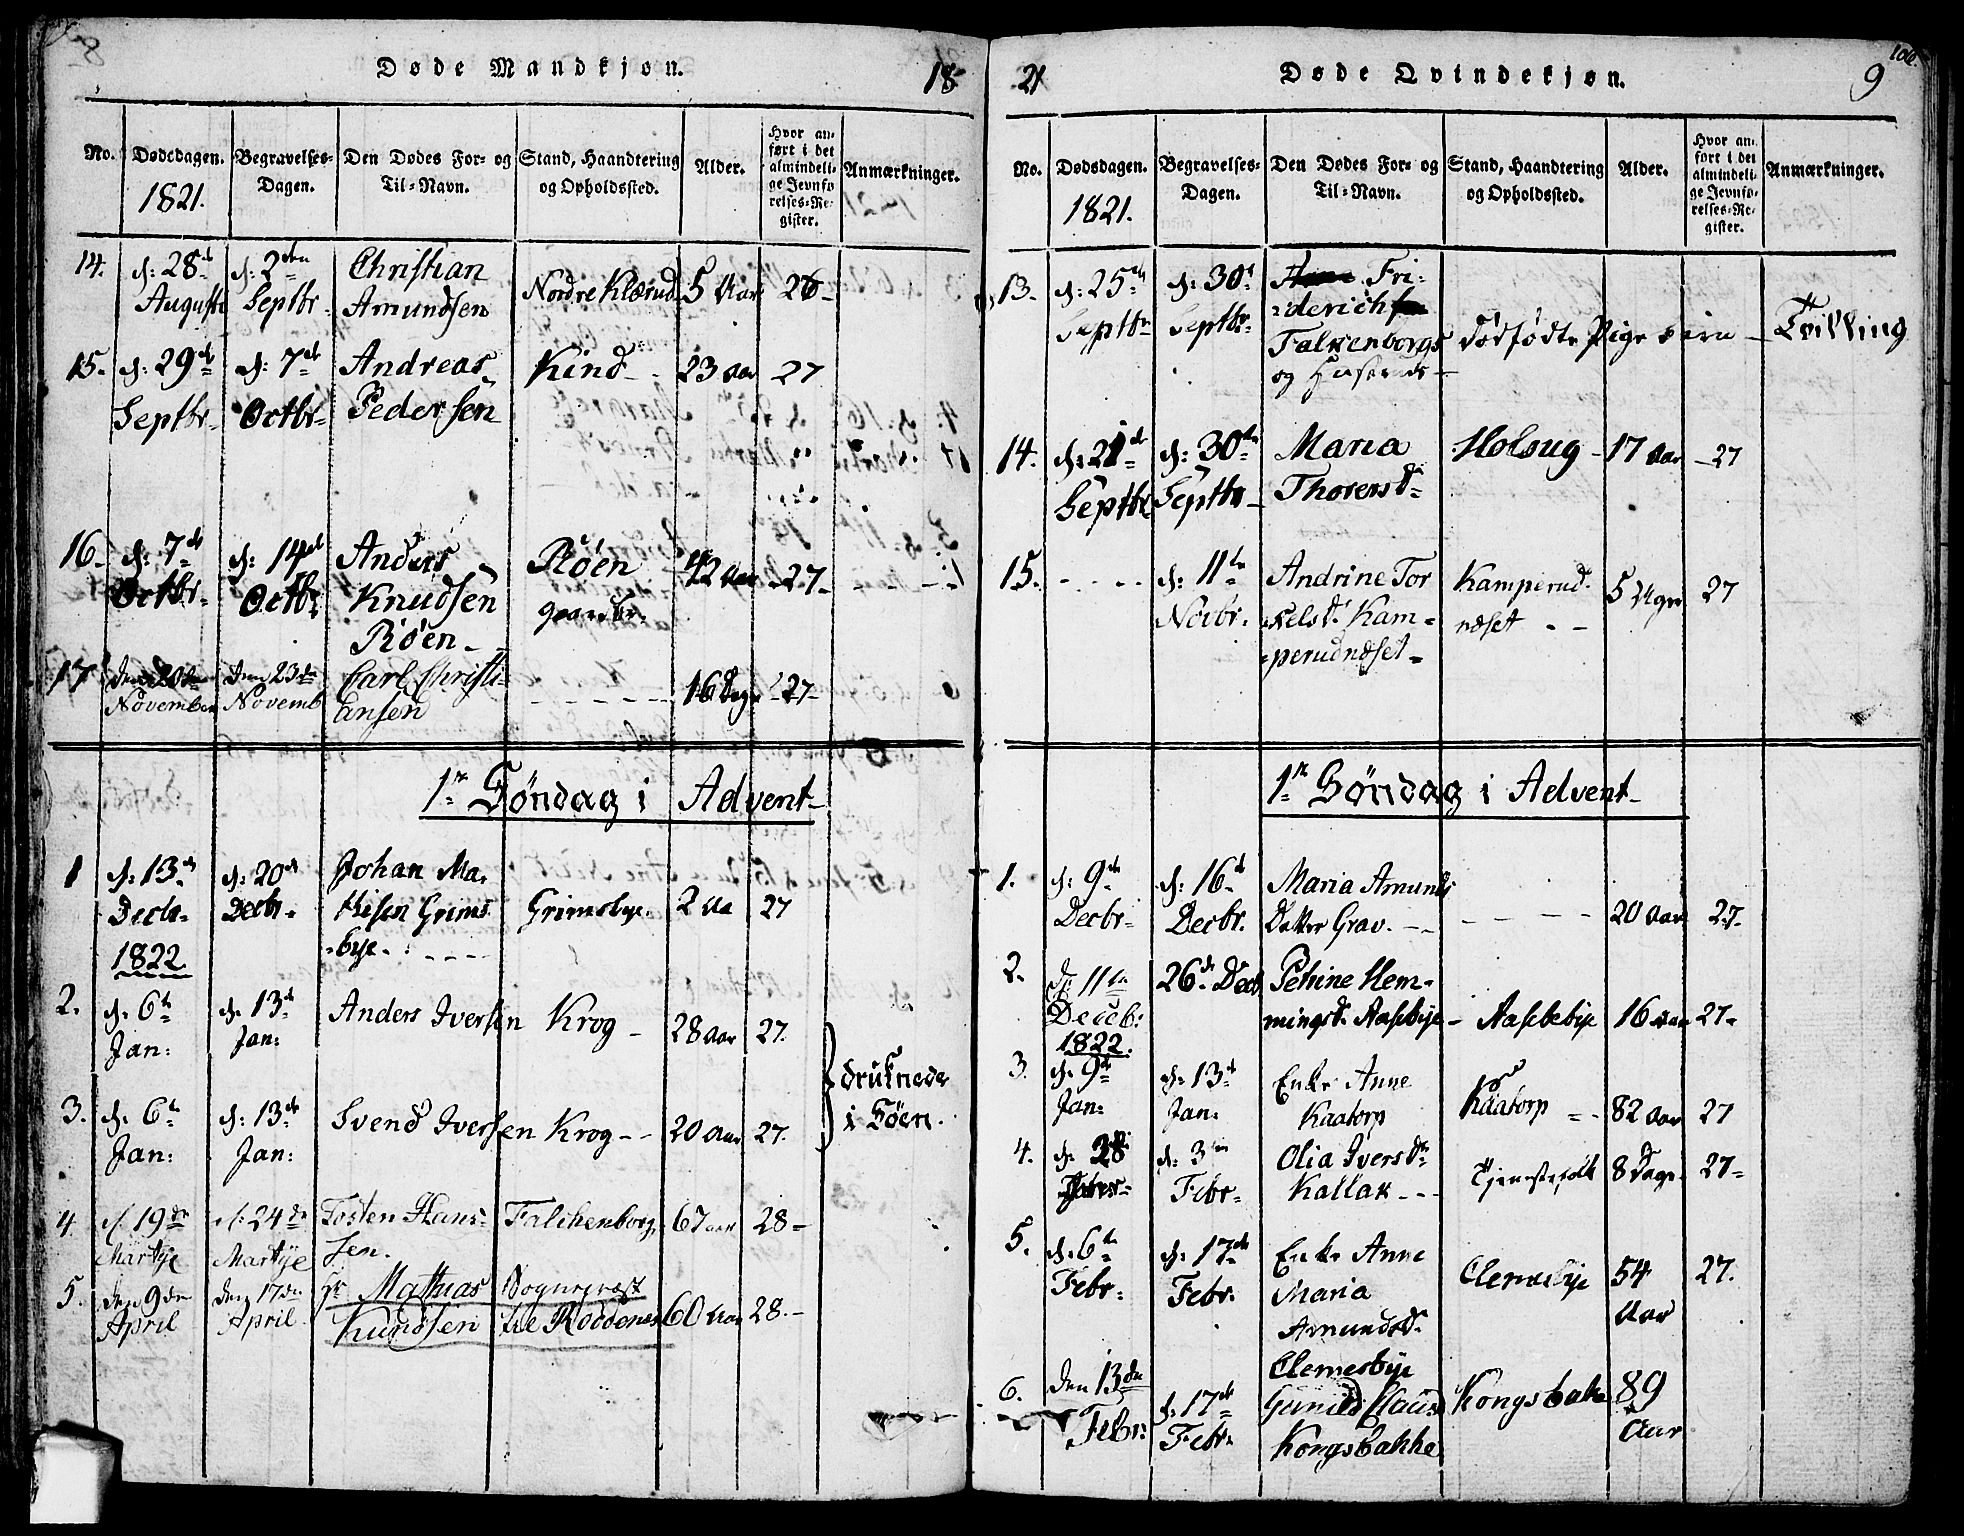 Døde Mandkjøn.
18
No.
Dødsdagen.
1821.
Begravelses-
Dagen.
Den Dødes For- og
Til-Navn.
Stand, Haandtering
og Opholdssted.
Alder.
Hvor an-
ført i det
almindeli-
ge Jevnfø
relses-Re-
gister.
Anmærkninger.
14.
d: 28de
August
d: 2den
Septbr.
Christian
Amundsen
Nordre Klærud
5 Aar
26-
15.
d: 29de
Septbr-
d: 7de
Octbr-
Andreas
Pedersen
Kind
23 Aar
27
16-
d: 7de
Octbr-
d: 14de
Octbr
Anders
Knudsen
Röen-
Röen
42 Aar
-27.
17
November
den 23de
Novemb
Carl Christi-
ansen
16 Dage
-27-
1te Söndag i Advent-
1
d: 13de
Decbr-
1822
d: 20de
Decbr-
Johan Ma-
thisen Grims
-bye.
Grimsbye.
2 Aa
27
2.
d. 6te
Jan:
d. 13de
Jan:
Anders Iversen
Krog-
28 Aar
27.
druknede
i Föen.
3.
d. 6te
Jan:
d: 13de
Jan:
Svend Iversen
Krog--
20 Aar
27.
4.
d. 19de
Martje
d: 24de
Martje
Tosten Hans-
sen.
Falchenborg,
67 aar
28-
5.
den 9de
April
den 17de
April
Hr Mathias
Kundsen
Sognepræst
til Röddenes
60 Aar
28.-
21
Døde Qvindekjøn.
106.
9
No.
Dødsdagen.
1821.
Begravelses-
Dagen.
Den Dødes For- og
Til-Navn.
Stand, Haandtering
og Opholdssted.
Alder.
Hvor an-
ført i det
almindeli-
ge Jevnfø-
relses-Re-
gister.
Anmærkninger.
13.
d: 25de
Septbr
d: 30te
Septbr
Fri-
derich
Falkenborgs
og Hustrues-
dödfödte Pige barn
Tvilling
14.
d: 21de
Septbr
d: 30te
Septbr-
Maria
Thorersd-
Holsug-
17 Aar
-27
15.
d: 11te
Novbr.
Andrine Tor
kelsd. Kam-
-perudnæset-
Kamperud-
næset
5 Uger
27
1te Söndag i Advent-
1.
d: 9de
Decbr-
d: 16de
Decbr.
Maria Amunds
Datter Grav.
20 Aar
27.
2.
d: 11te
Deceb:
1822.
26de Decb
Petrine Hem-
mingsd. Aasebye-
Aasebye
16 Aar
27-
3.
d. 9de
Jan:
d: 13de
Jan:
Enke Anne
Kaatorp
Kaatorp
82 Aar
27
4.
d: 28
d: 3die
Febr-
Olia Iversdr
Kallak---
Tjenestefolk
8 Dage
27-
5.
d. 6te
Febr-
d: 17de
Febr-
Enke Anne
Maria
Amundsd.
Clemesbye
Clemesbye
54
Aar
27.
6.
den 13de
Febr:
d: 17de
Febr-
Gunild Claus
Kongsbakke
Kongsbakke
89
Aar